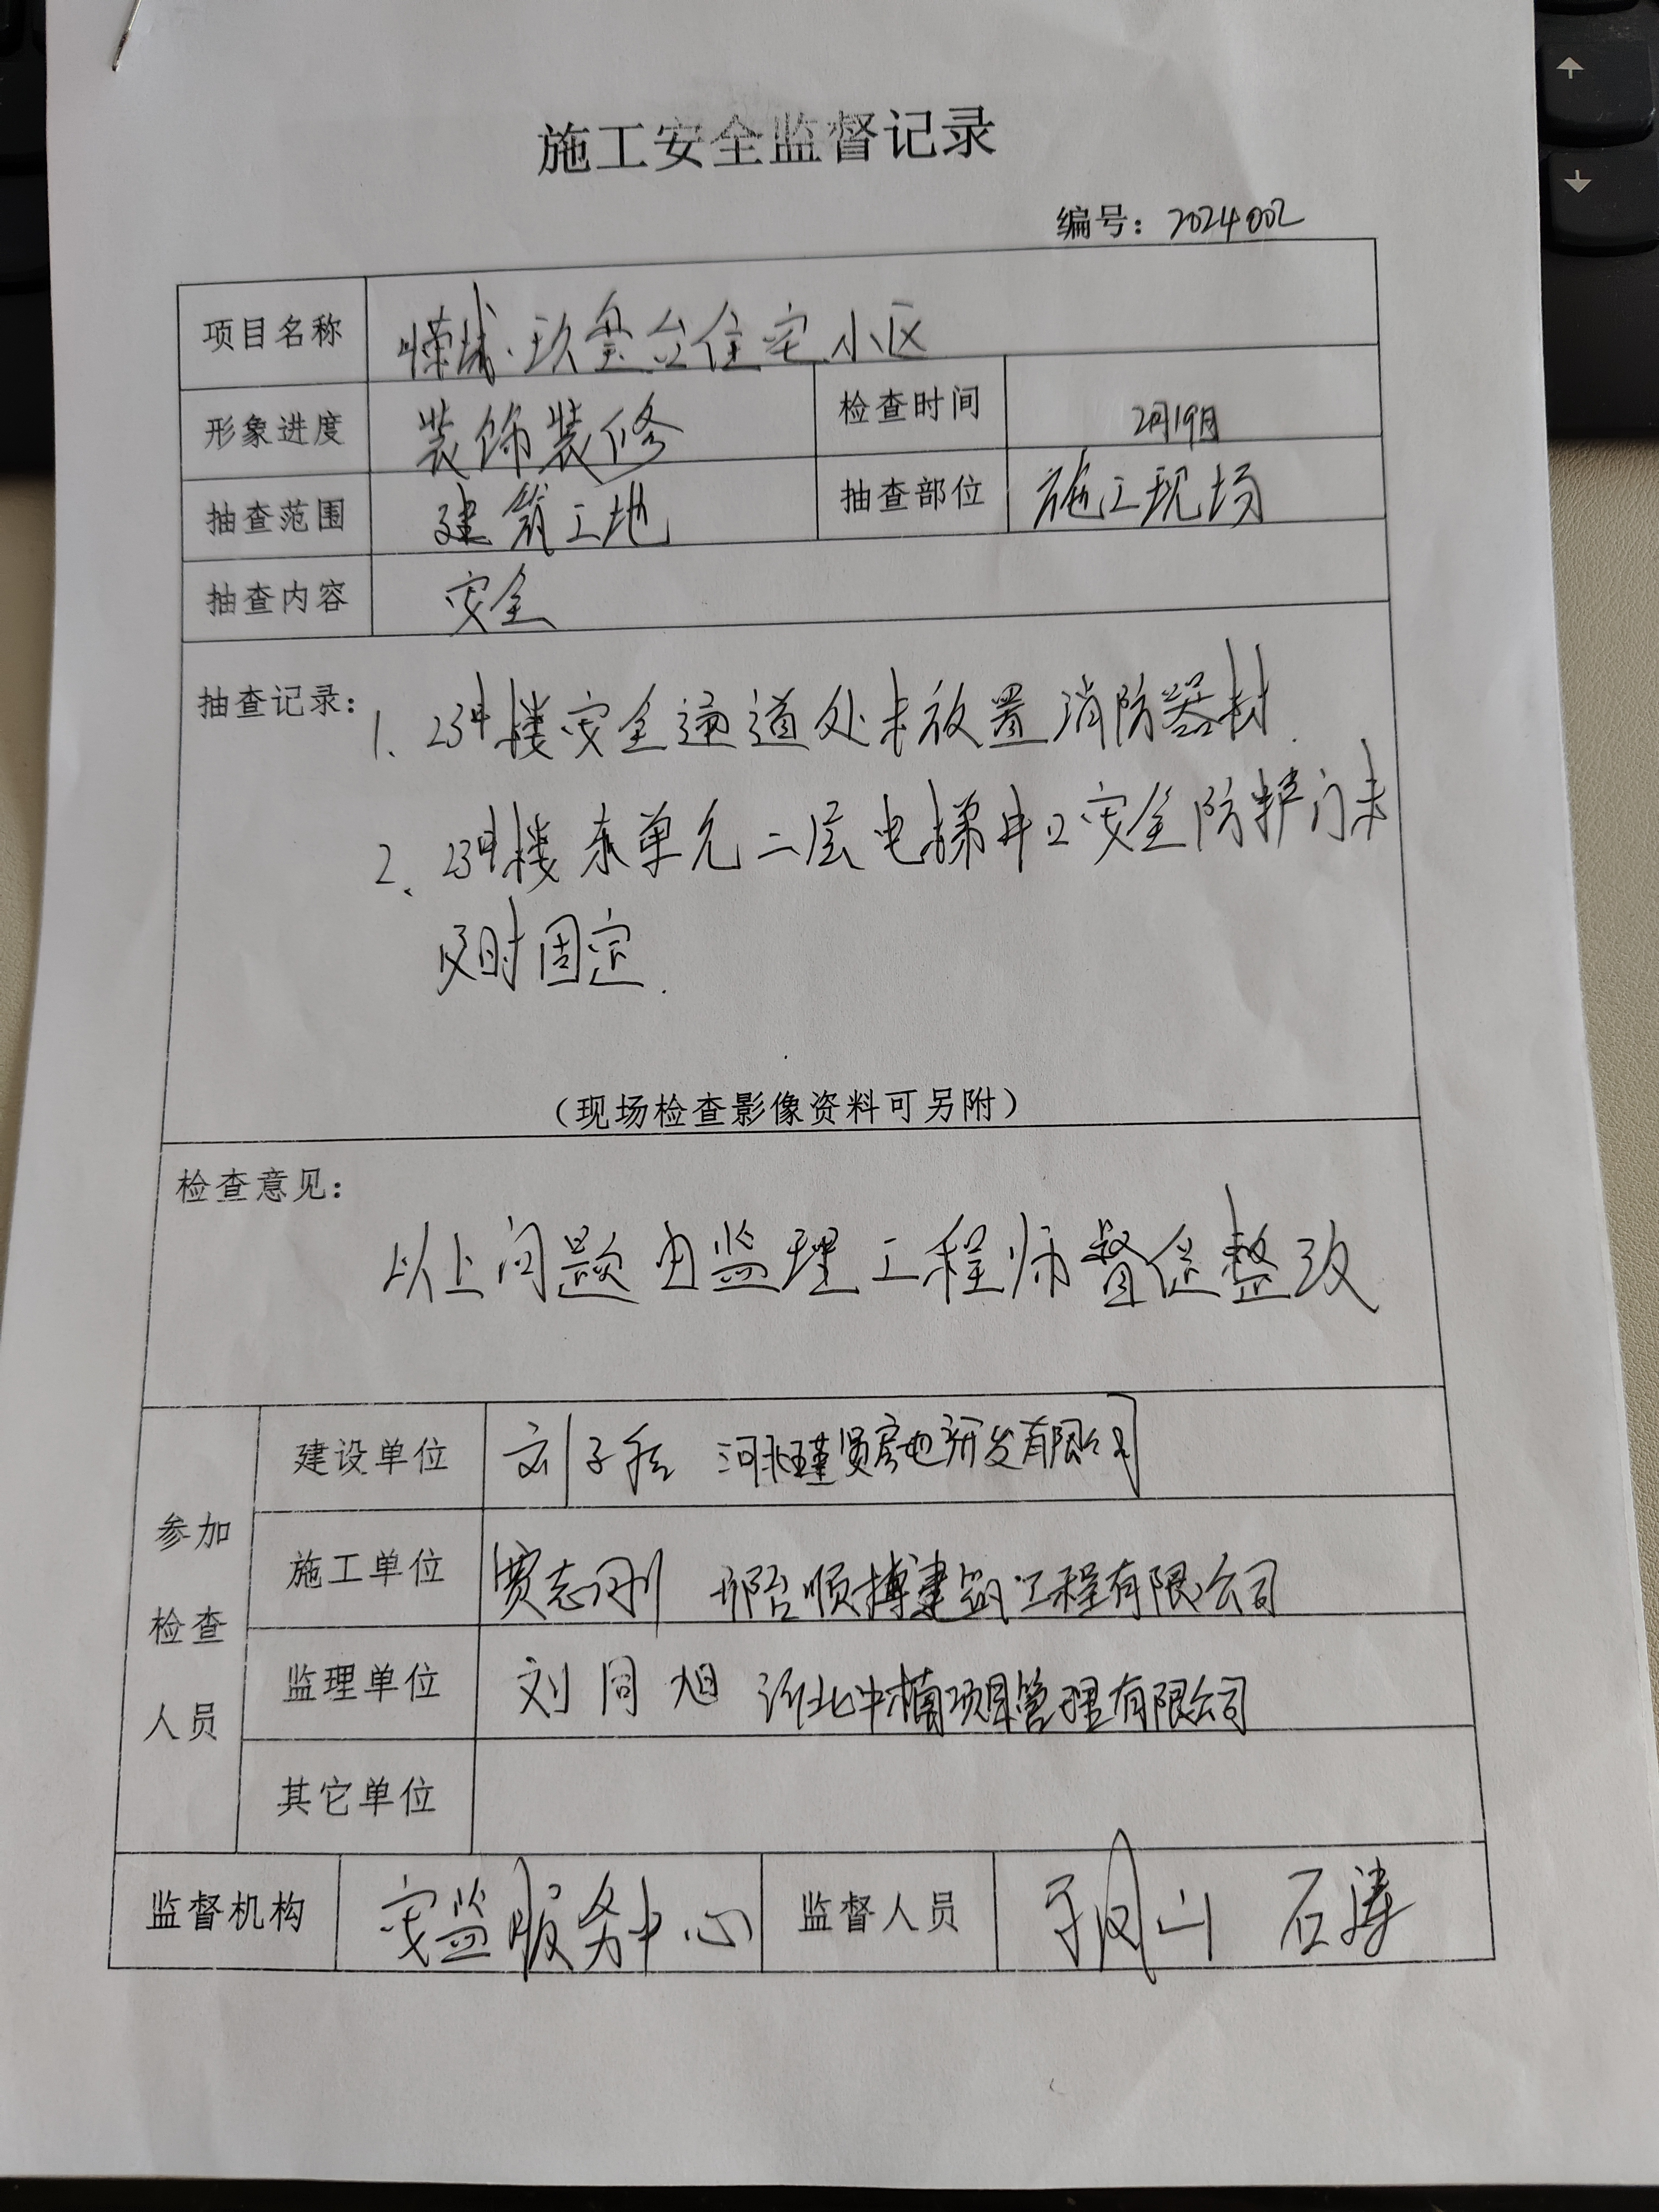 施工安全监督记录
编号：2024002
项目名称 玖玺台住宅小区
形象进度 装饰装修 检查时间 2月19日
抽查范围 建筑工地 抽查部位 施工现场
抽查内容 安全
抽查记录：1、23#楼安全通道处未放置消防器材.
2、23#楼东单元二层电梯井口安全防护门未
及时固定.
（现场检查影像资料可另附）
检查意见：
以上问题由监理工程师督促整改
参加检查人员
建设单位 刘子 河北瑾贤房地产开发有限公司
施工单位 贾志刚 邢台顺搏建筑工程有限公司
监理单位 刘同旭 河北中楠项目管理有限公司
其它单位
监督机构 安监服务中心 监督人员 于凤山 石涛